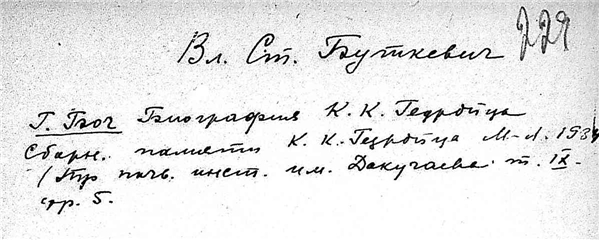 229
Вл. Ст. Буткевич
Г. Бюч Биография К. К. Гедройца
Сборн. памяти К. К. Гедройца М-Л. 193
/Тр. почв. инст. им. Докучаева т. IX.
стр. 5.